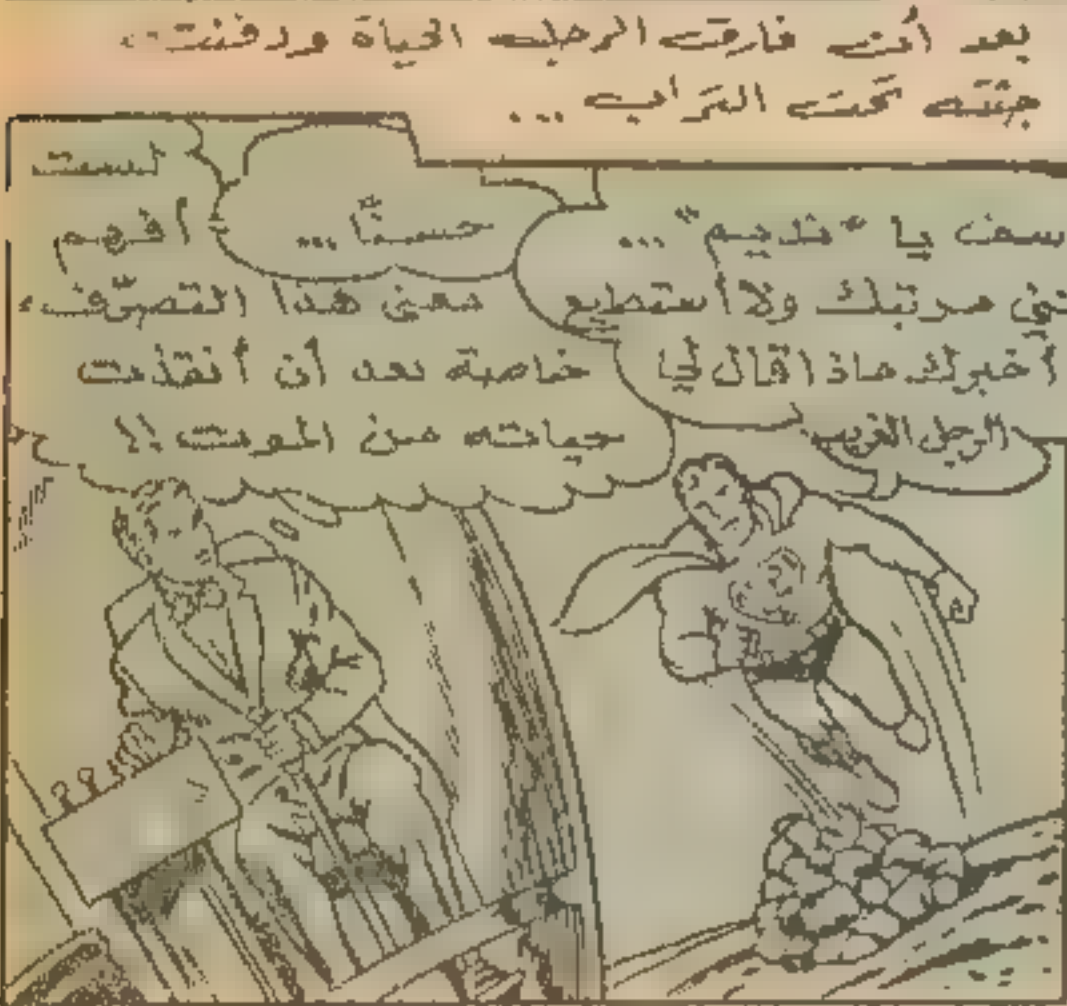 بعد أن فارقت الرجل الحياة ودفنت
جثته تحت التراب ...
سف يا "نديم" ...
مرتبك ولا أستطيع
أخبرك ماذا قال لي
الرجل الغريب
حسنًا ...
لست
أفهم
معنى هذا التصرّف،
خاصة بعد أن أنقذت
حياته من الموت !!